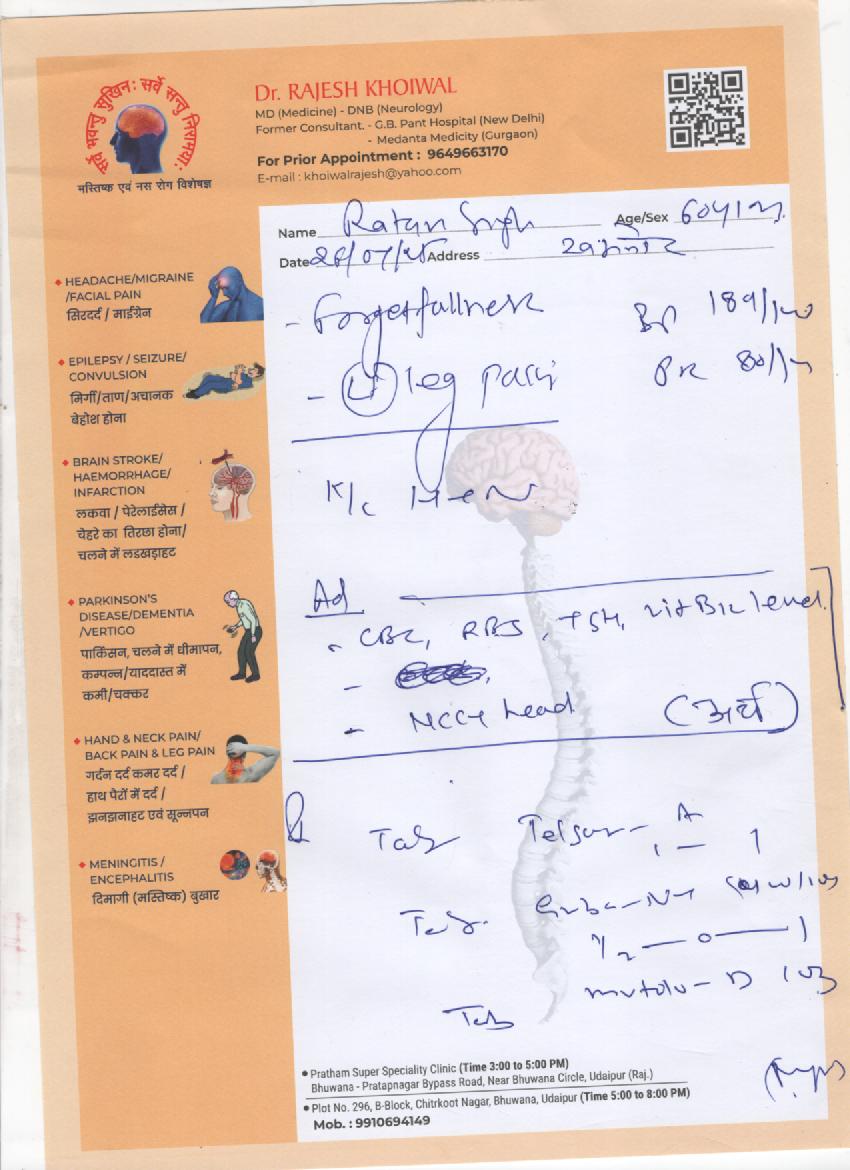 सर्वे भवन्तु सुखिनः सर्वे सन्तु निरामयाः
मस्तिष्क एवं नस रोग विशेषज्ञ
Dr. RAJESH KHOIWAL
MD (Medicine) - DNB (Neurology)
Former Consultant. - G.B. Pant Hospital (New Delhi)
- Medanta Medicity (Gurgaon)
For Prior Appointment : 9649663170
E-mail : khoiwalrajesh@yahoo.com
Name Ratan Singh Age/Sex 60y/m
Date 26/07/25 Address
- Forgetfullness BP 189/100
- Lt leg pain PR 80/m
K/c HTN
Ad
- CBC, RBS, TSH, Vit B12 level
-
- NCCT head
Tab Telsar- A
1 — 1
Tab. Gaba-NT
1/2 — 0 — 1
Tab D
◆ HEADACHE/MIGRAINE
/FACIAL PAIN
सिरदर्द / माईग्रेन
◆ EPILEPSY / SEIZURE/
CONVULSION
मिर्गी/ताण/अचानक
बेहोश होना
◆ BRAIN STROKE/
HAEMORRHAGE/
INFARCTION
लकवा / पेरेलाईसेस /
चेहरे का तिरछा होना/
चलने में लडखड़ाहट
◆ PARKINSON'S
DISEASE/DEMENTIA
/VERTIGO
पार्किंसन, चलने में धीमापन,
कम्पन्न/याददास्त में
कमी/चक्कर
◆ HAND & NECK PAIN/
BACK PAIN & LEG PAIN
गर्दन दर्द कमर दर्द /
हाथ पैरों में दर्द /
झनझनाहट एवं सून्नपन
◆ MENINGITIS /
ENCEPHALITIS
दिमागी (मस्तिष्क) बुखार
• Pratham Super Speciality Clinic (Time 3:00 to 5:00 PM)
Bhuwana - Pratapnagar Bypass Road, Near Bhuwana Circle, Udaipur (Raj.)
• Plot No. 296, B-Block, Chitrkoot Nagar, Bhuwana, Udaipur (Time 5:00 to 8:00 PM)
Mob. : 9910694149